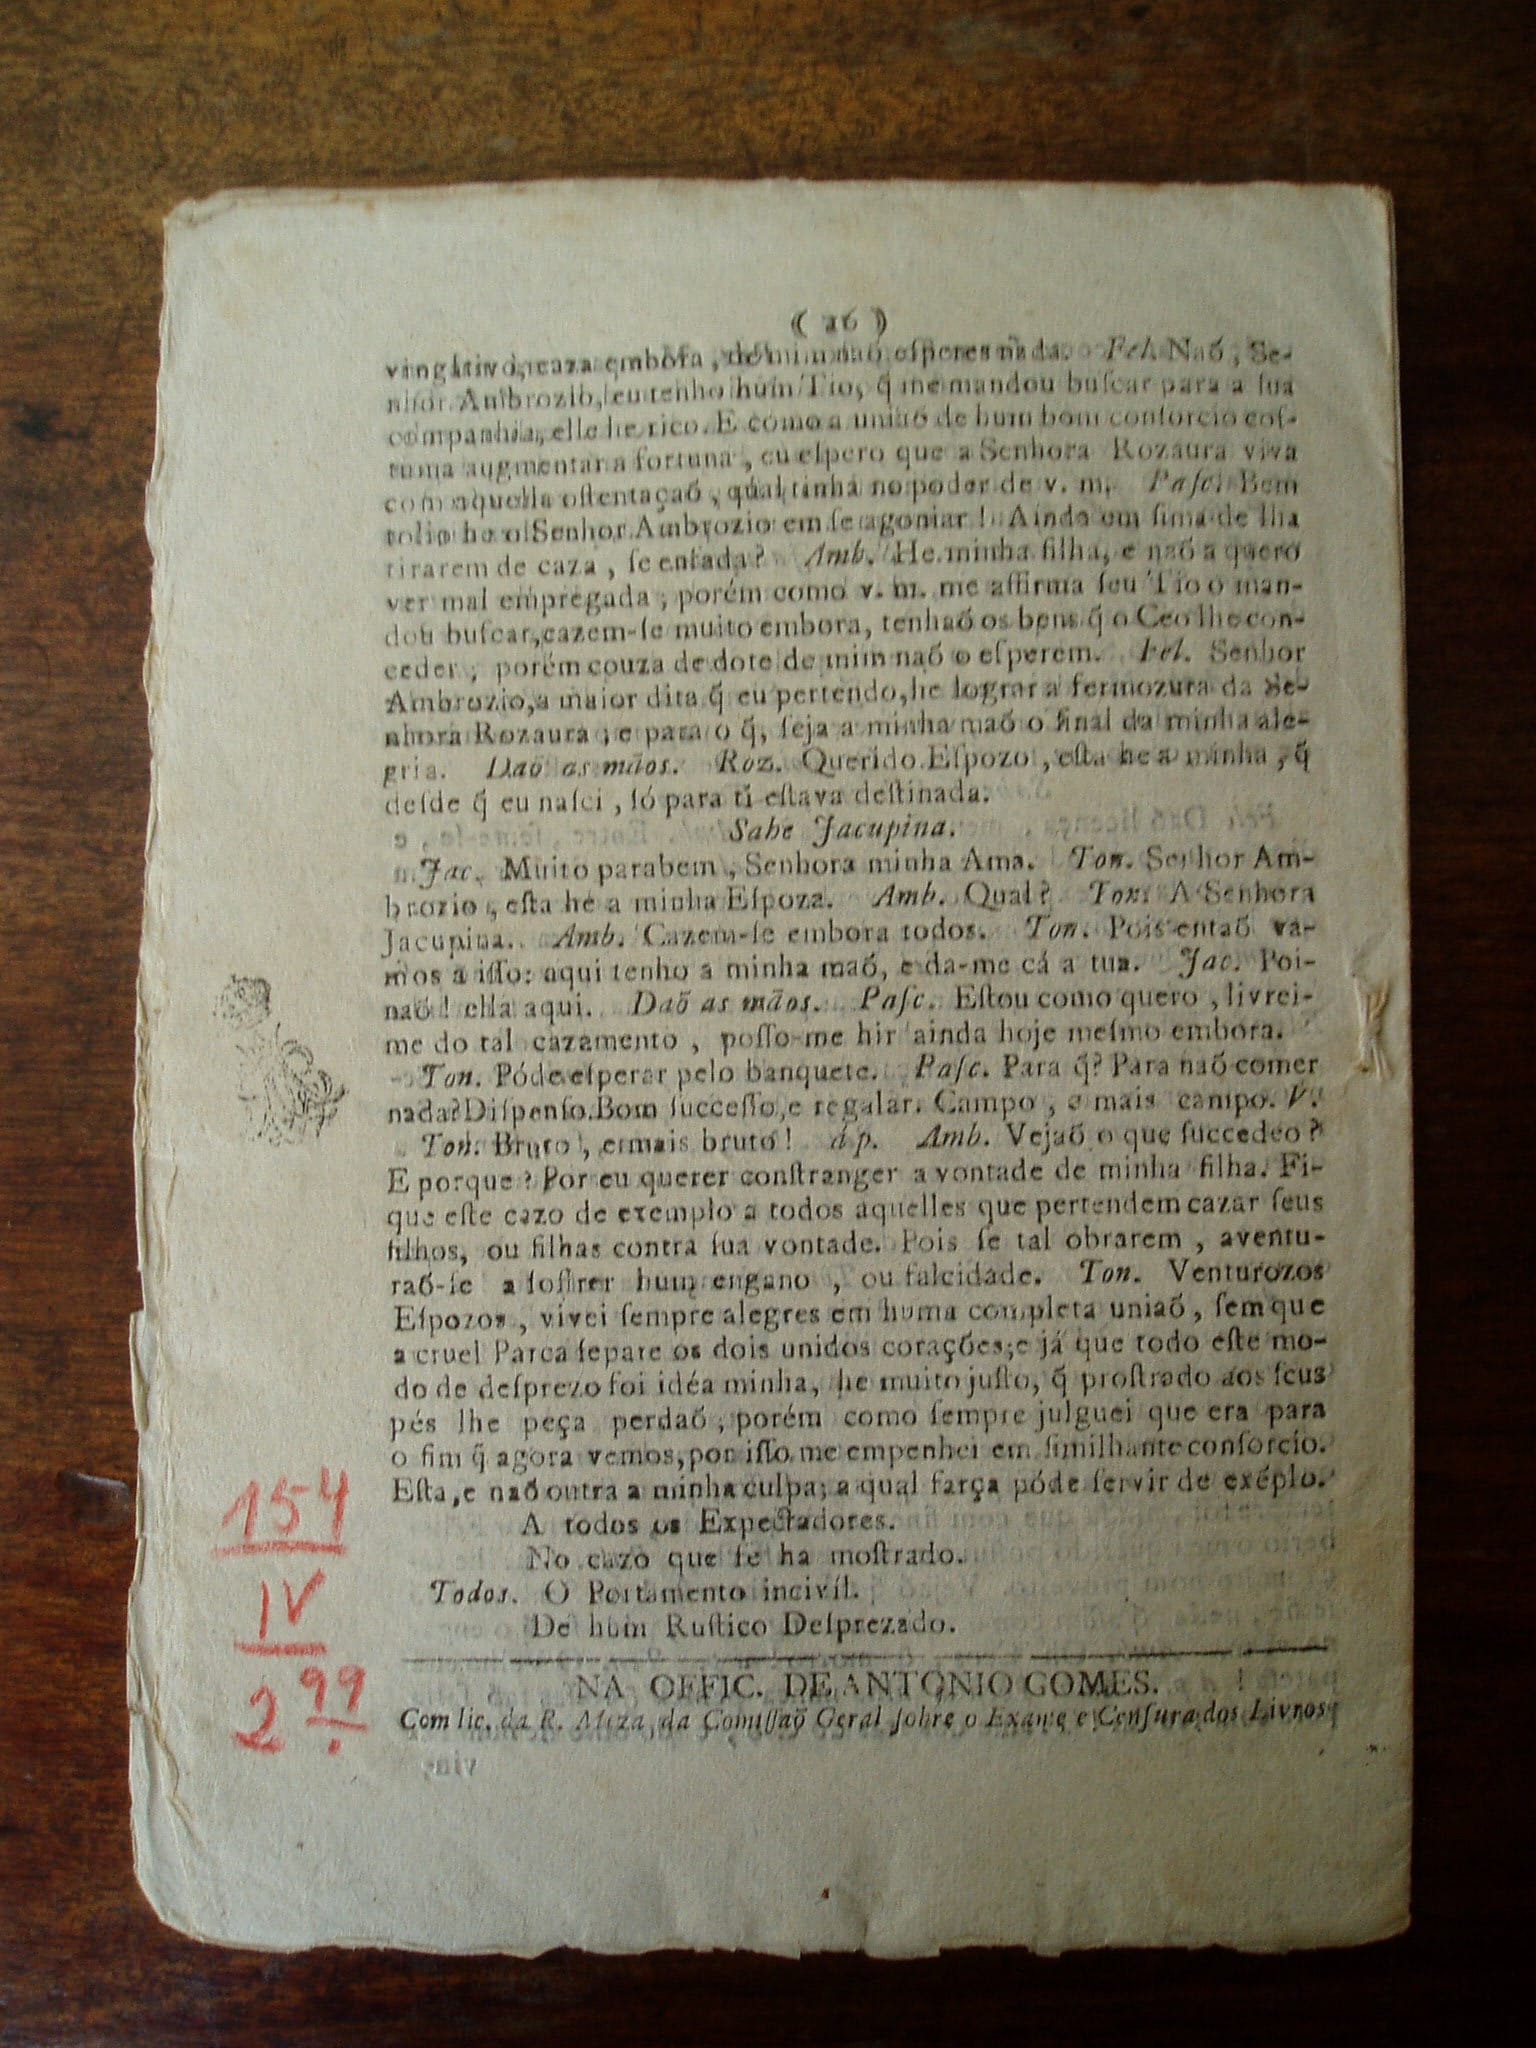 ( 16 )
vingativo, caza embora, de mim naõ eſperes nada. Fel. Naõ, Se-
nhor Ambrozio, eu tenho hum Tio, q̃ me mandou buſcar para a ſua
companhia, elle he rico. E como a uniaõ de hum bom conſorcio coſ-
tuma augmentar a fortuna, eu eſpero que a Senhora Rozaura viva
com aquella oſtentaçaõ, qual tinha no poder de v. m. Paſc. Bem
tolo he o Senhor Ambrozio em ſe agoniar! Ainda em ſima de lha
tirarem de caza, ſe enfada? Amb. He minha filha, e naõ a quero
ver mal empregada; porém como v. m. me affirma ſeu Tio o man-
dou buſcar, cazem-ſe muito embora, tenhaõ os bens q̃ o Ceo lhe con-
ceder; porém couza de dote de mim naõ o eſperem. Fel. Senhor
Ambrozio, a maior dita q̃ eu pertendo, he lograr a fermozura da Se-
nhora Rozaura; e para o q̃, ſeja a minha maõ o final da minha ale-
gria. Daõ as mãos. Roz. Querido Eſpozo, eſta he a minha, q̃
deſde q̃ eu naſci, ſó para ti eſtava deſtinada.
Sahe Jacupina.
Jac. Muito parabem, Senhora minha Ama. Ton. Senhor Am-
brozio, eſta he a minha Eſpoza. Amb. Qual? Ton. A Senhora
Jacupina. Amb. Cazem-ſe embora todos. Ton. Pois entaõ va-
mos a iſſo: aqui tenho a minha maõ, e da-me cá a tua. Jac. Poi-
naõ! ella aqui. Daõ as mãos. Paſc. Eſtou como quero, livrei-
me do tal cazamento, poſſo-me hir ainda hoje meſmo embora.
Ton. Póde eſperar pelo banquete. Paſc. Para q̃? Para naõ comer
nada? Diſpenſo. Bom ſucceſſo, e regalar. Campo, e mais campo. V.
Ton. Bruto, e mais bruto! á p. Amb. Vejaõ o que ſuccedeo?
E porque? Por eu querer conſtranger a vontade de minha filha. Fi-
que eſte cazo de exemplo a todos aquelles que pertendem cazar ſeus
filhos, ou filhas contra ſua vontade. Pois ſe tal obrarem, aventu-
raõ-ſe a ſoffrer hum engano, ou falcidade. Ton. Venturozos
Eſpozos, vivei ſempre alegres em huma completa uniaõ, ſem que
a cruel Parca ſepare os dois unidos corações; e já que todo eſte mo-
do de deſprezo foi idéa minha, he muito juſto, q̃ proſtrado aos ſeus
pés lhe peça perdaõ, porém como ſempre julguei que era para
o fim q̃ agora vemos, por iſſo me empenhei em ſimilhante conſorcio.
Eſta, e naõ outra a minha culpa; a qual farça póde ſervir de exẽplo.
A todos os Expectadores.
No cazo que ſe ha moſtrado.
Todos. O Portamento incivíl.
De hum Ruſtico Deſprezado.
NA OFFIC. DE ANTONIO GOMES.
Com lic. da R. Meza da Comiſſaõ Geral ſobre o Exame e Cenſura dos Livros
154
IV
2 99